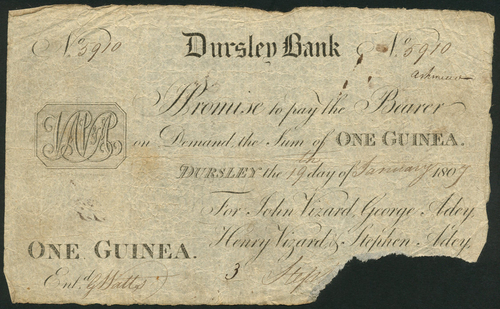 No. 5910 Dursley Bank No. 5910
I Promise to pay the Bearer
on Demand the Sum of ONE GUINEA.
DURSLEY the 19th day of January 1807
For John Vizard, George Adey,
Henry Vizard & Stephen Adey.
ONE GUINEA.
3 Step
Entd. G Watts